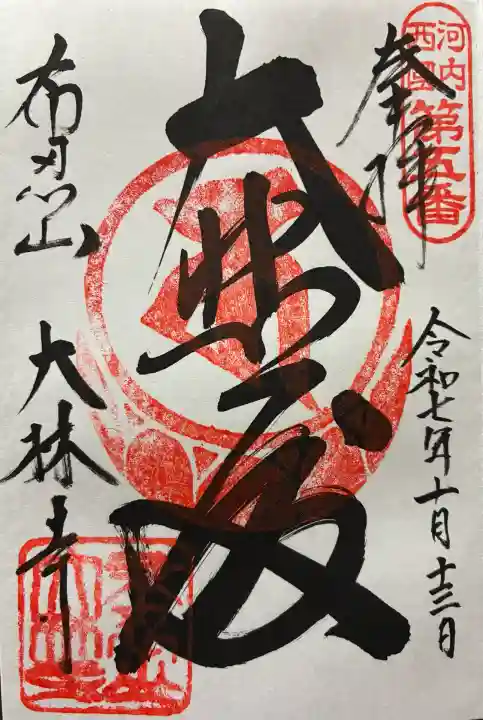 河内
西國
第五番
奉拝
令和七年十月十三日
大悲殿
布忍山
大林寺